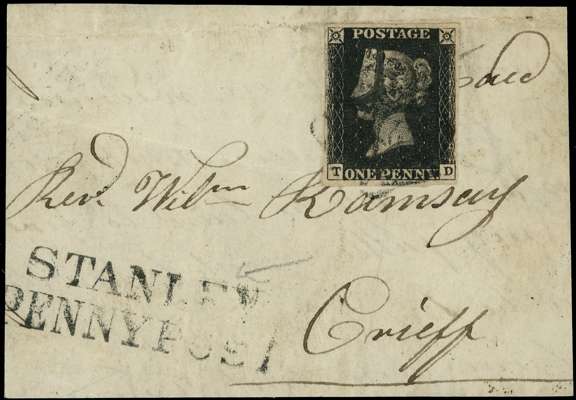 POSTAGE
Paid
T ONE PENNY D
Revd. Wilm Ramsay
STANLEY
PENNY POST
Crieff